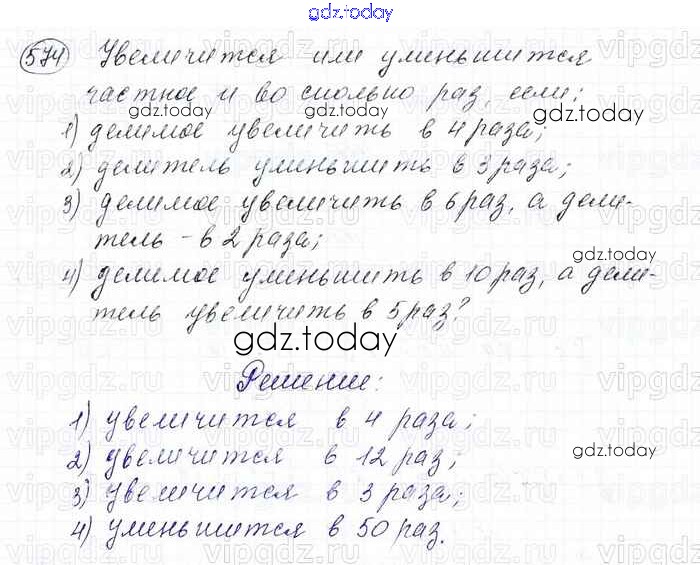 gdz.today
574 Увеличится или уменьшится
частное и во сколько раз, если:
gdz.today gdz.today
1) делимое увеличить в 4 раза;
2) делитель уменьшить в 3 раза;
3) делимое увеличить в 6 раз, а дели-
тель – в 2 раза;
gdz.today
4) делимое уменьшить в 10 раз, а дели-
тель увеличить в 5 раз?
gdz.today
Решение:
1) увеличится в 4 раза;
2) увеличится в 12 раз;
gdz.today
3) увеличится в 3 раза;
4) уменьшится в 50 раз.